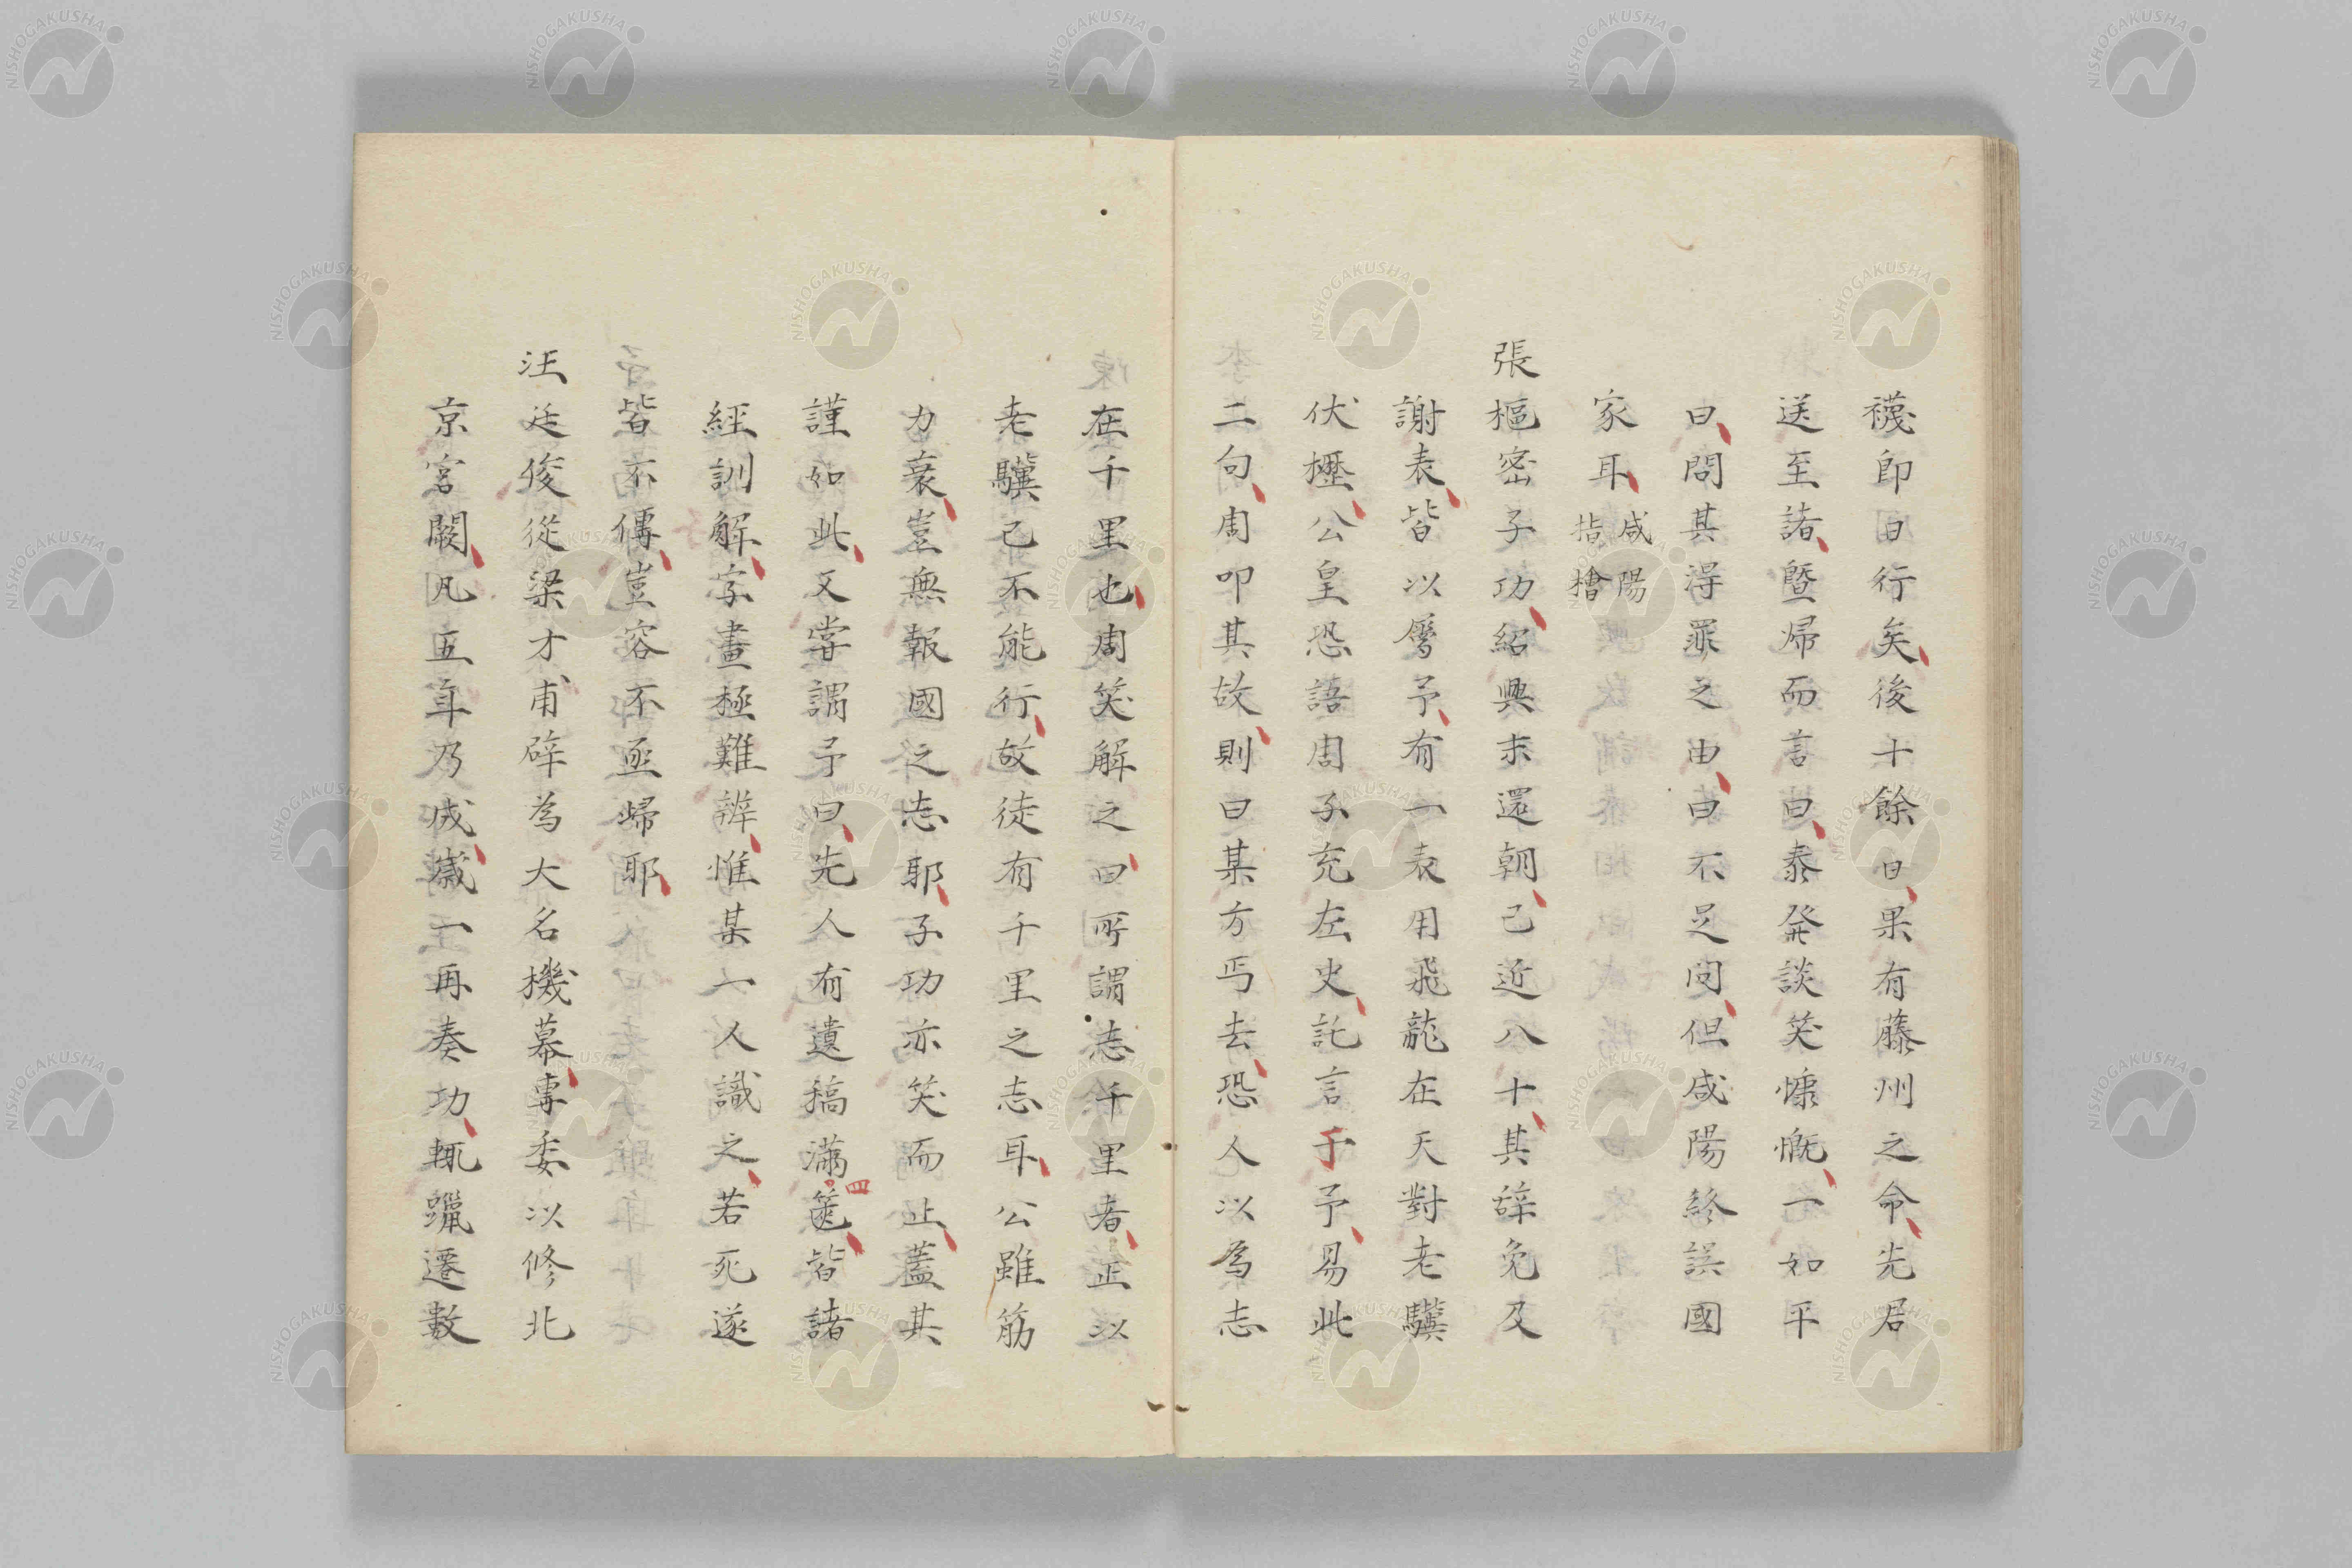 襪即日行矣後十餘日果有藤州之命先居
送至諸曁歸而言曰泰發談笑慷慨一如平
日問其得罪之由曰不足问但咸陽終誤國
家耳咸陽指檜
張樞密子功紹興末還朝已近八十其辭免及
謝表皆以屬予有一表用飛龍在天對老驥
伏櫪公皇恐語周子充左史託言于予易此
二句周叩其故則曰某方丐去恐人以為志
在千里也周笑解之曰所謂志千里者正以
老驥已不能行故徒有千里之志耳公雖筋
力衰豈無報國之志耶子功亦笑而止蓋其
謹如此又嘗謂予曰先人有遺稿滿篋皆諸
四
經訓解字畫極難辨惟某一人識之若死遂
皆不傳豈容不亟歸耶
汪廷俊從梁才甫辟為大名機幕專委以修北
京宮闕凡五年乃成歲一再奏功輒躐遷數
NISHOGAKUSHA